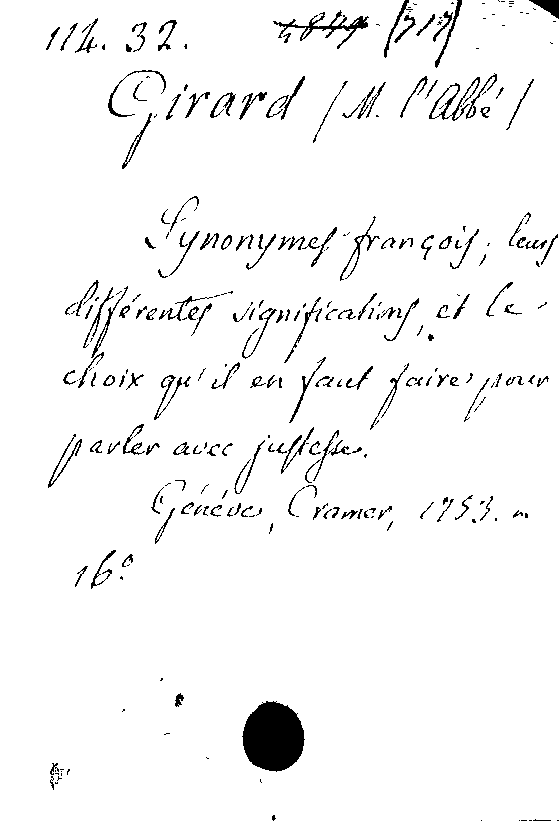 114. 32. 4879 (717)
Girard (M. l'Abbé)
Synonymes françois, leurs
différentes significations, et le
choix qu'il en faut faire pour
parler avec justesse.
Génève, Cramer, 1753. in
16°